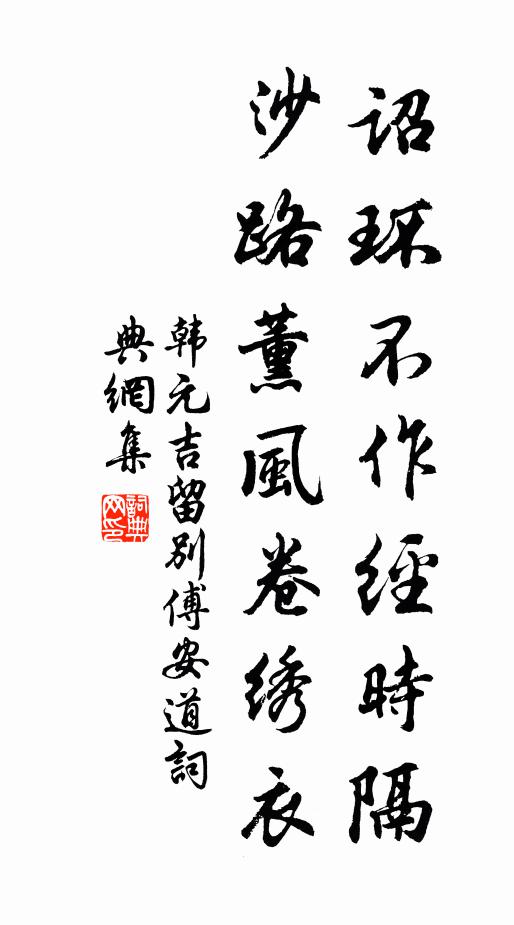 詔环不作經時隔
沙路薰風卷绣衣
韩元吉留别傅安道詞
典網集
詞典网印